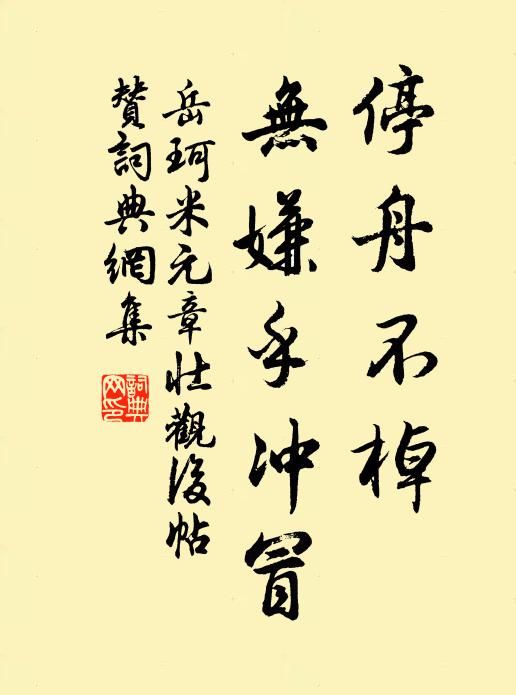 停舟不棹
無嫌乎冲冒
岳珂米元章壮觀後帖
贊詞典網集
詞典网印